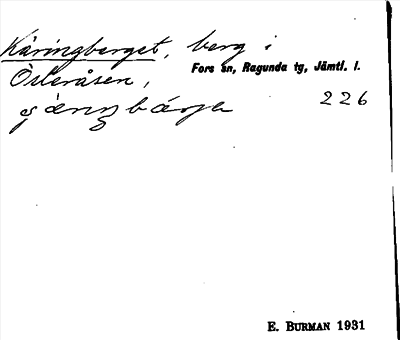 Käringberget, berg i
Österåsen, Fors sn, Ragunda tg, Jämtl. l.
226
E. BURMAN 1931